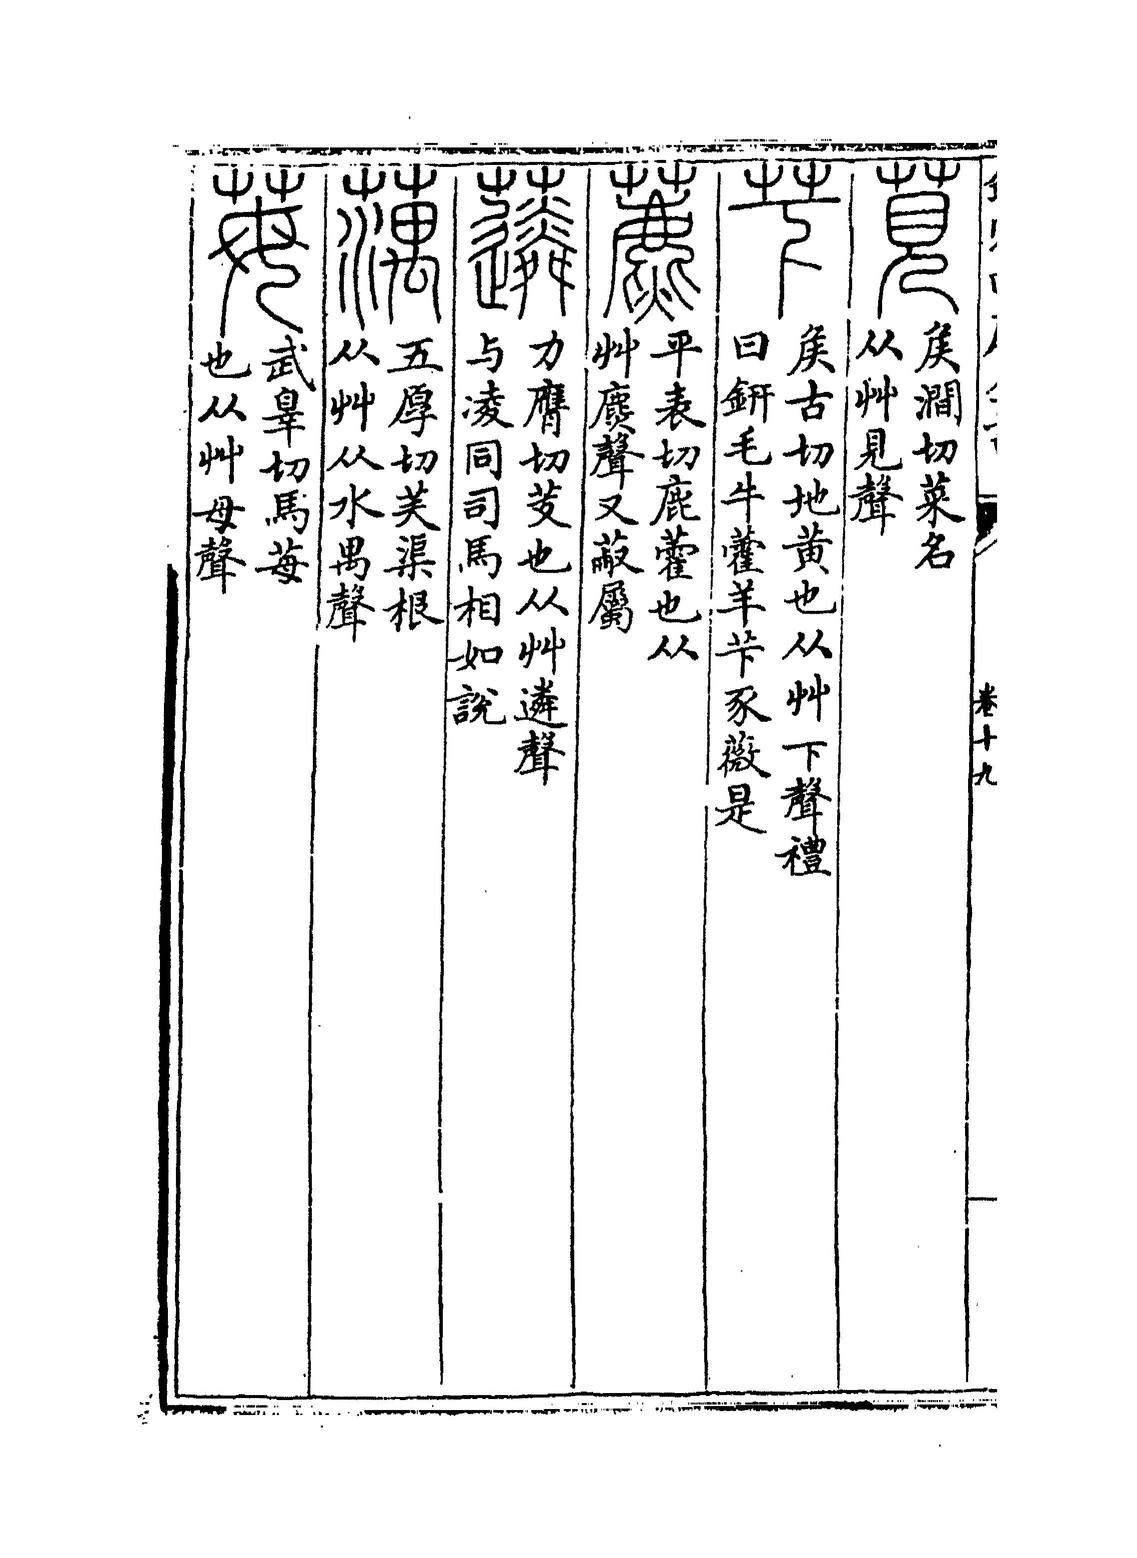 莧
矦澗切菜名
从艸見聲
芐
矦古切地黃也从艸下聲禮
曰鈃毛牛藿羊芐豕薇是
藨
平表切鹿藿也从
艸麃聲又蔽屬
蘧
力膺切芰也从艸遴聲
与凌同司馬相如說
藕
五厚切芙渠根
从艸从水禺聲
苺
武辠切馬苺
也从艸母聲
卷十九